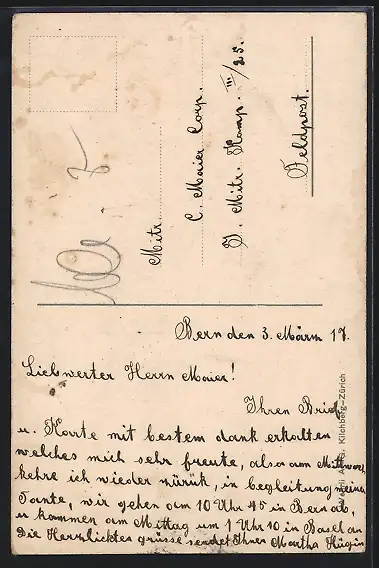 Mitr.
C. Maier Corp.
I. Mitr. Komp. III/25.
Feldpost.
Bern den 3. Märzn 17.
Liebwerter Herrn Maier!
Ihren Brief
u. Karte mit bestem dank erhalten
welches mich sehr freute, also am Mittwoch
kehre ich wieder zürük, in begleitung meiner
Tante, wir gehen am 10 Uhr 45 in Bern ab,
u kommen am Mittag um 1 Uhr 10 in Basel an
Die Herzlicktes grüsse sendet Ihnen Martha Hügin
Kilchberg-Zürich